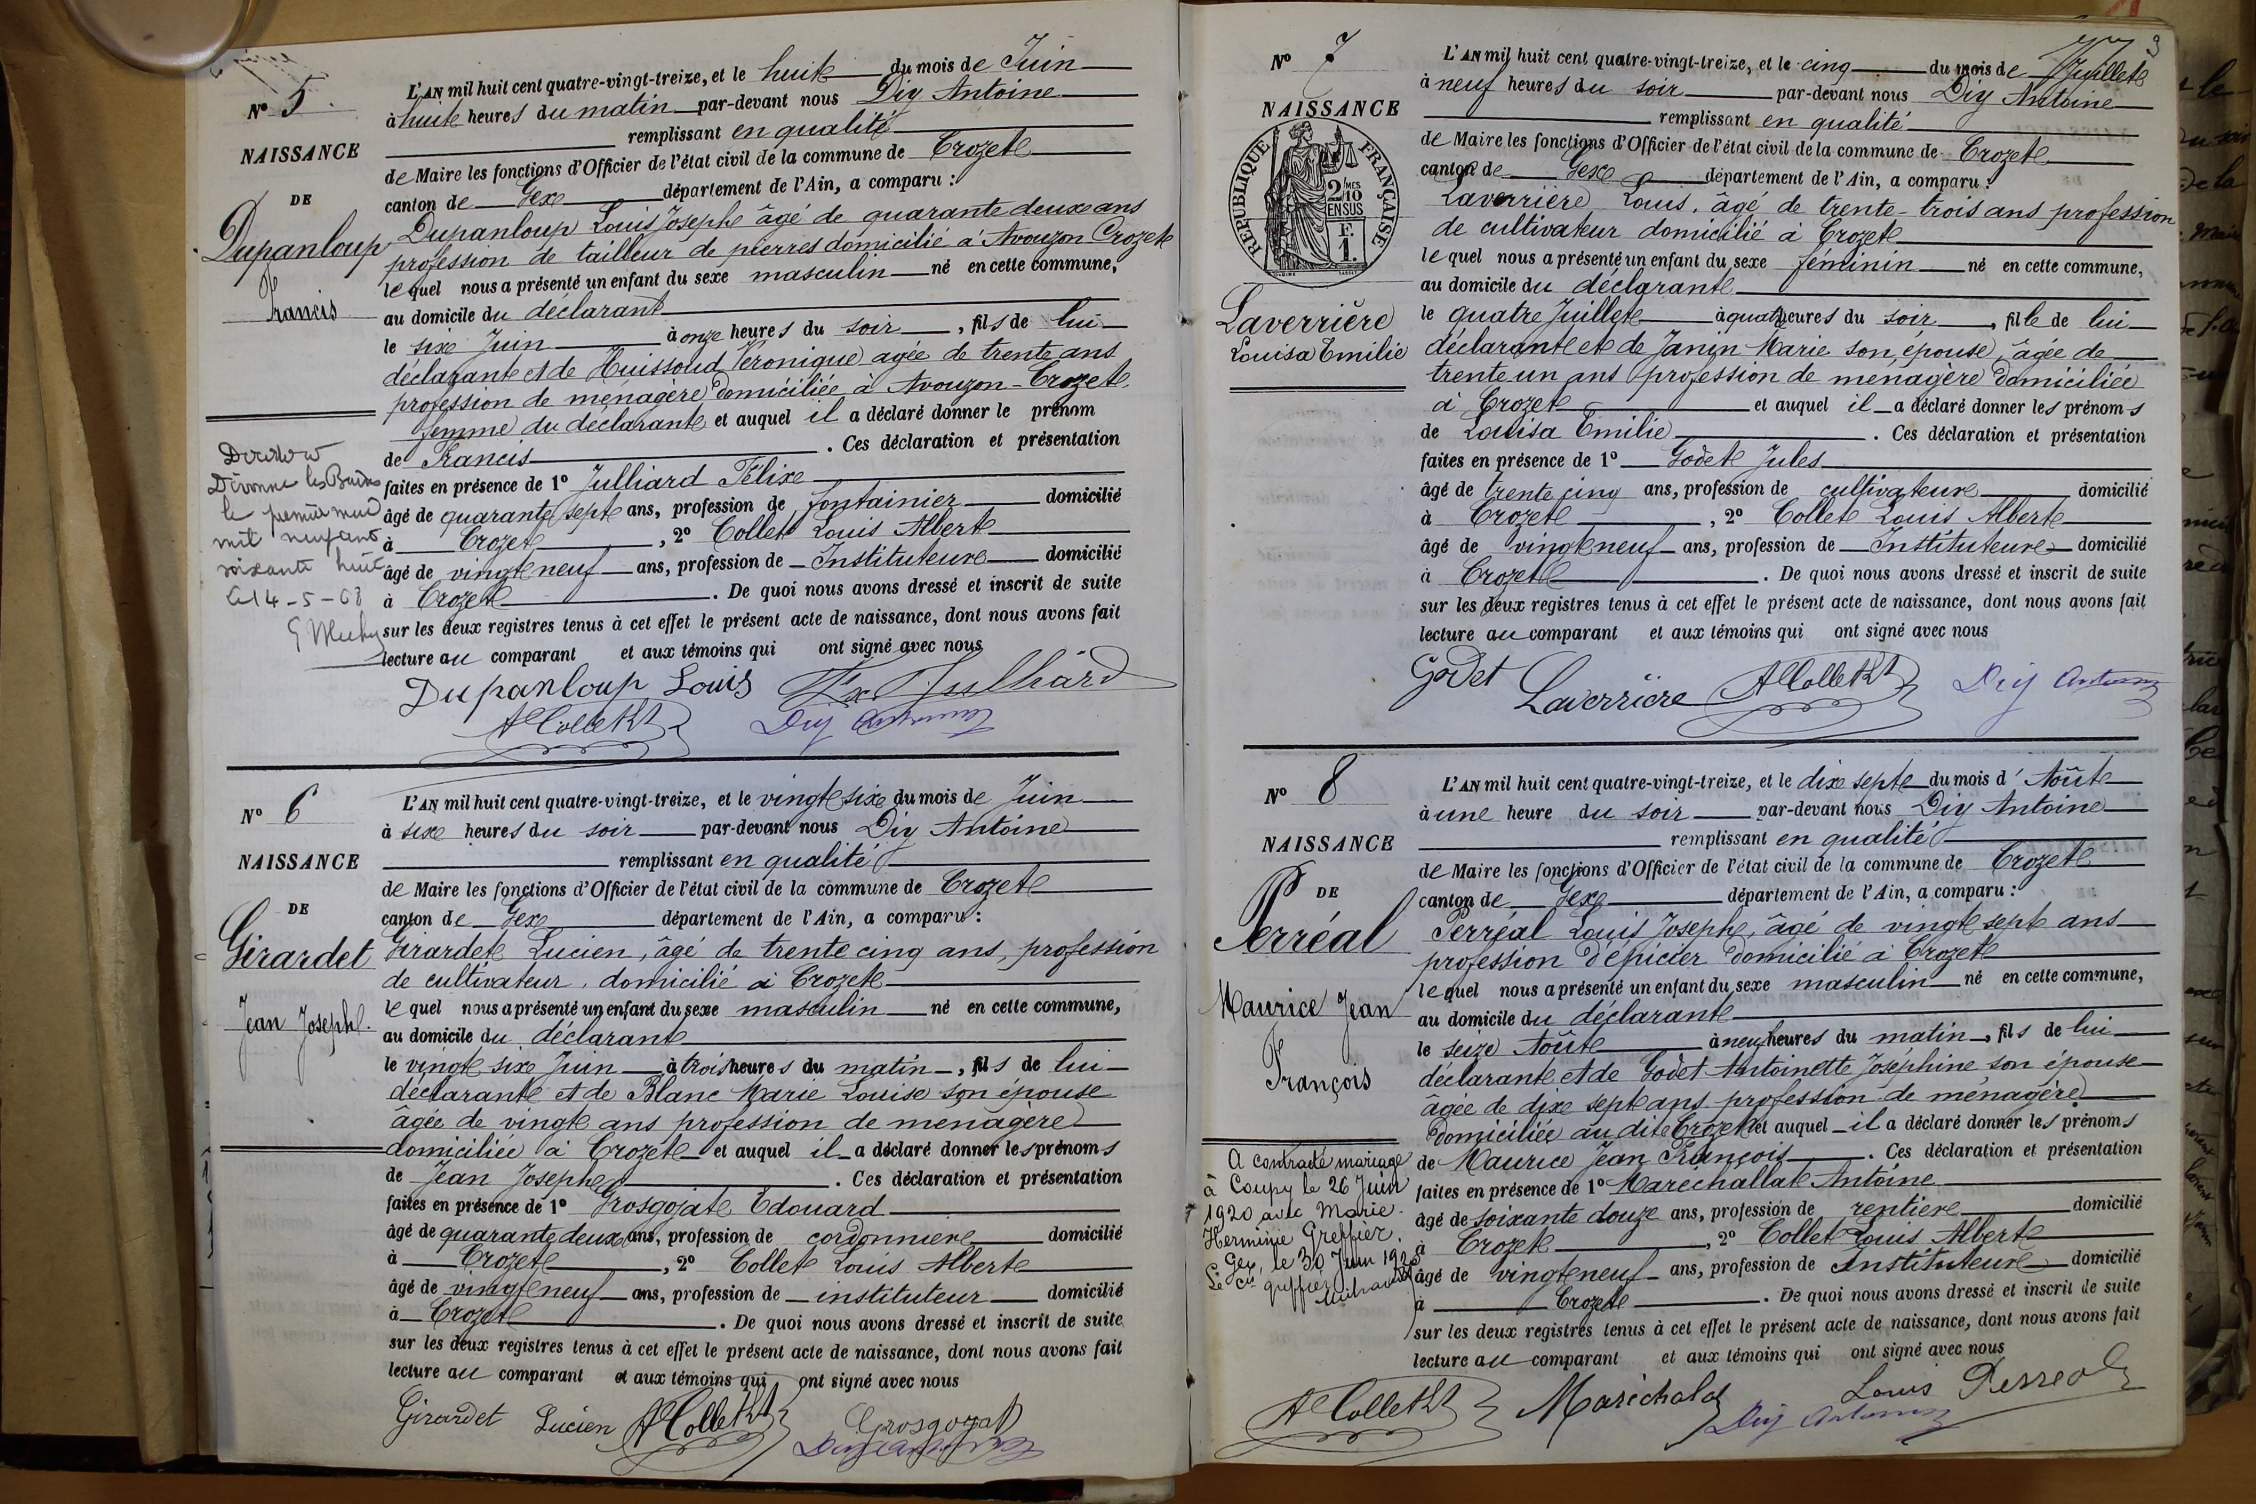 N° 5
NAISSANCE
DE
Dupanloup
Francis
L'AN mil huit cent quatre-vingt-treize, et le huit du mois de Juin
à huit heures du matin par-devant nous Diy Antoine
remplissant en qualité
de Maire les fonctions d'Officier de l'état civil de la commune de Crozet
canton de Gex département de l'Ain, a comparu :
Dupanloup Louis Joseph âgé de quarante deux ans
profession de tailleur de pierres domicilié à Avouzon Crozet
lequel nous a présenté un enfant du sexe masculin né en cette commune,
au domicile du déclarant
le six Juin à onze heures du soir, fils de lui
déclarant et de Huissoud Véronique agée de trente ans
profession de ménagère domiciliée à Avouzon-Crozet
femme du déclarant et auquel il a déclaré donner le prénom
de Francis. Ces déclaration et présentation
faites en présence de 1° Julliard Félix
âgé de quarante sept ans, profession de fontainier domicilié
à Crozet, 2° Collet Louis Albert
âgé de vingt neuf ans, profession de Instituteur domicilié
à Crozet. De quoi nous avons dressé et inscrit de suite
sur les deux registres tenus à cet effet le présent acte de naissance, dont nous avons fait
lecture au comparant et aux témoins qui ont signé avec nous
Divonne les Bains
le premier mai
mil neuf cent
soixante huit
Le 14-5-68
Dupanloup Louis Fx Julliard
At Collet Diy Antoine
N° 6
NAISSANCE
DE
Girardet
Jean Joseph.
L'AN mil huit cent quatre-vingt-treize, et le vingt six du mois de Juin
à six heures du soir par-devant nous Diy Antoine
remplissant en qualité
de Maire les fonctions d'Officier de l'état civil de la commune de Crozet
canton de Gex département de l'Ain, a comparu :
Girardet Lucien, âgé de trente cinq ans, profession
de cultivateur, domicilié à Crozet
lequel nous a présenté un enfant du sexe masculin né en cette commune,
au domicile du déclarant
le vingt six Juin à trois heures du matin, fils de lui
déclarant et de Blanc Marie Louise son épouse
âgée de vingt ans profession de ménagère
domiciliée à Crozet et auquel il a déclaré donner les prénoms
de Jean Joseph. Ces déclaration et présentation
faites en présence de 1° Grosgojat Edouard
âgé de quarante deux ans, profession de cordonnier domicilié
à Crozet, 2° Collet Louis Albert
âgé de vingt neuf ans, profession de instituteur domicilié
à Crozet. De quoi nous avons dressé et inscrit de suite
sur les deux registres tenus à cet effet le présent acte de naissance, dont nous avons fait
lecture au comparant et aux témoins qui ont signé avec nous
Girardet Lucien At Collet Grosgojat
Diy Antoine
3
N° 7
NAISSANCE
RÉPUBLIQUE FRANÇAISE
2/10MES
EN SUS
F.
1.
Laverrière
Louisa Emilie
L'AN mil huit cent quatre-vingt-treize, et le cinq du mois de Juillet
à neuf heures du soir par-devant nous Diy Antoine
remplissant en qualité
de Maire les fonctions d'Officier de l'état civil de la commune de Crozet
canton de Gex département de l'Ain, a comparu :
Laverrière Louis, âgé de trente-trois ans profession
de cultivateur domicilié à Crozet
lequel nous a présenté un enfant du sexe féminin né en cette commune,
au domicile du déclarant
le quatre Juillet à quatre heures du soir, fille de lui
déclarant et de Janin Marie son épouse, âgée de
trente un ans profession de ménagère domiciliée
à Crozet et auquel il a déclaré donner les prénoms
de Louisa Emilie. Ces déclaration et présentation
faites en présence de 1° Godet Jules
âgé de trente cinq ans, profession de cultivateur domicilié
à Crozet, 2° Collet Louis Albert
âgé de vingt neuf ans, profession de Instituteur domicilié
à Crozet. De quoi nous avons dressé et inscrit de suite
sur les deux registres tenus à cet effet le présent acte de naissance, dont nous avons fait
lecture au comparant et aux témoins qui ont signé avec nous
Godet Laverrière At Collet Diy Antoine
N° 8
NAISSANCE
DE
Perréal
Maurice Jean
François
L'AN mil huit cent quatre-vingt-treize, et le dix sept du mois d'Août
à une heure du soir par-devant nous Diy Antoine
remplissant en qualité
de Maire les fonctions d'Officier de l'état civil de la commune de Crozet
canton de Gex département de l'Ain, a comparu :
Perréal Louis Joseph, âgé de vingt sept ans
profession d'épicier domicilié à Crozet
lequel nous a présenté un enfant du sexe masculin né en cette commune,
au domicile du déclarant
le seize Août à neuf heures du matin, fils de lui
déclarant et de Godet Antoinette Joséphine son épouse
âgée de dix sept ans profession de ménagère
domiciliée au dit Crozet et auquel il a déclaré donner les prénoms
de Maurice Jean François. Ces déclaration et présentation
faites en présence de 1° Maréchallat Antoine
âgé de soixante douze ans, profession de rentier domicilié
à Crozet, 2° Collet Louis Albert
âgé de vingt neuf ans, profession de Instituteur domicilié
à Crozet. De quoi nous avons dressé et inscrit de suite
sur les deux registres tenus à cet effet le présent acte de naissance, dont nous avons fait
lecture au comparant et aux témoins qui ont signé avec nous
A contracté mariage
à Coupy le 26 Juin
1920 avec Marie
Herminie Greffier.
Gex, le 30 Juin 1920
Le Cis greffier
At Collet Maréchalat Louis Perréal
Diy Antoine